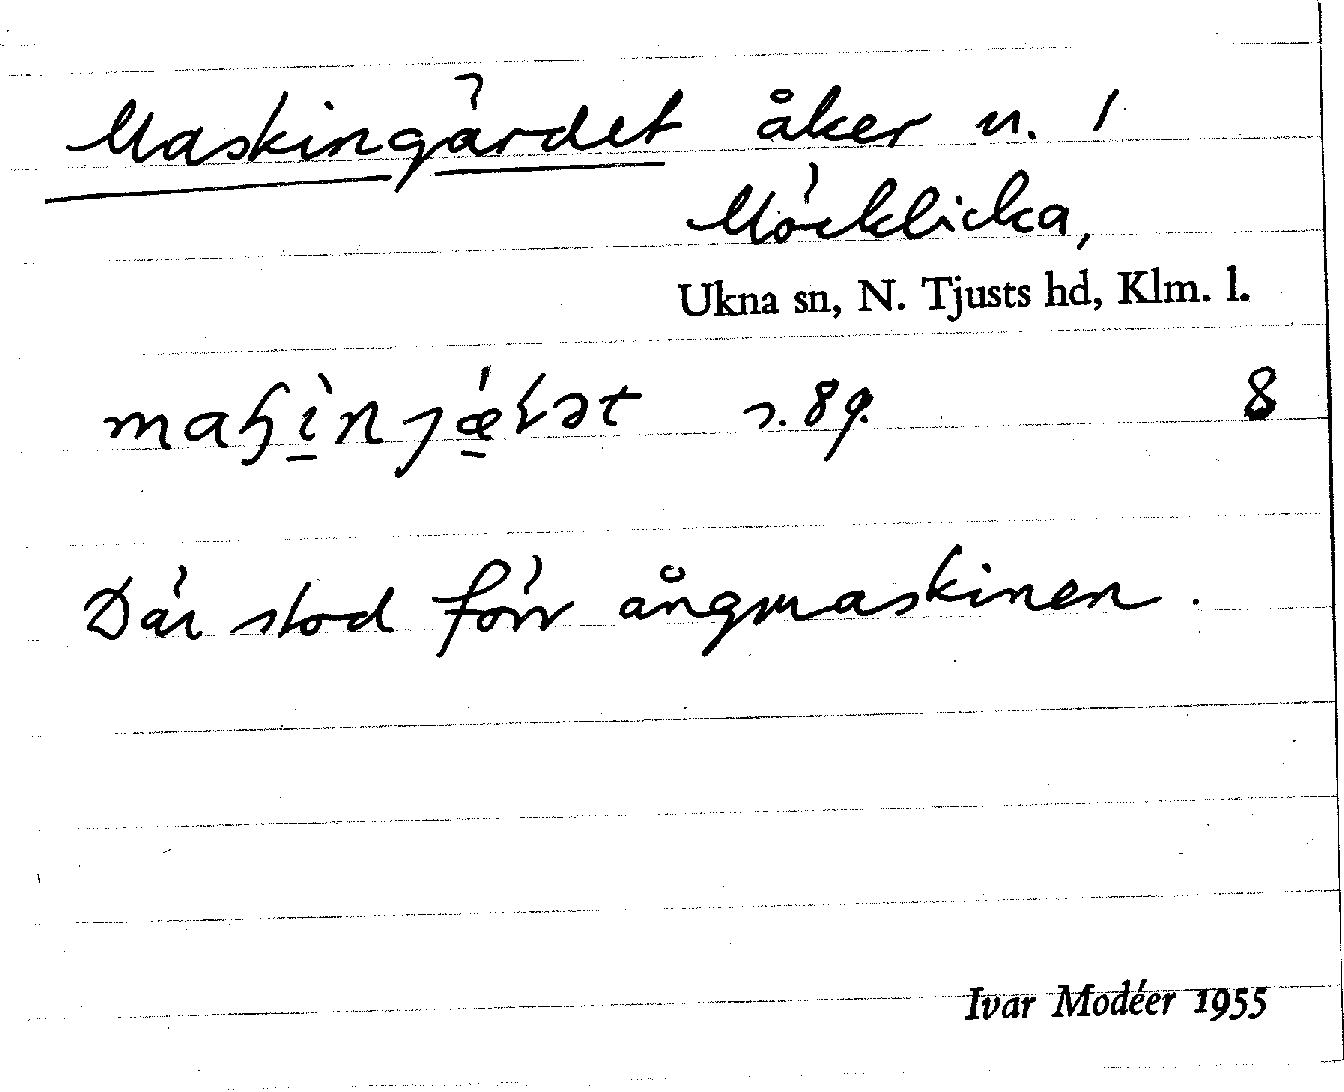 Maskingärdet åker n. 1
Möcklicka,
Ukna sn, N. Tjusts hd, Klm. l.
8
Där stod förr ångmaskinen.
Ivar Modéer 1955